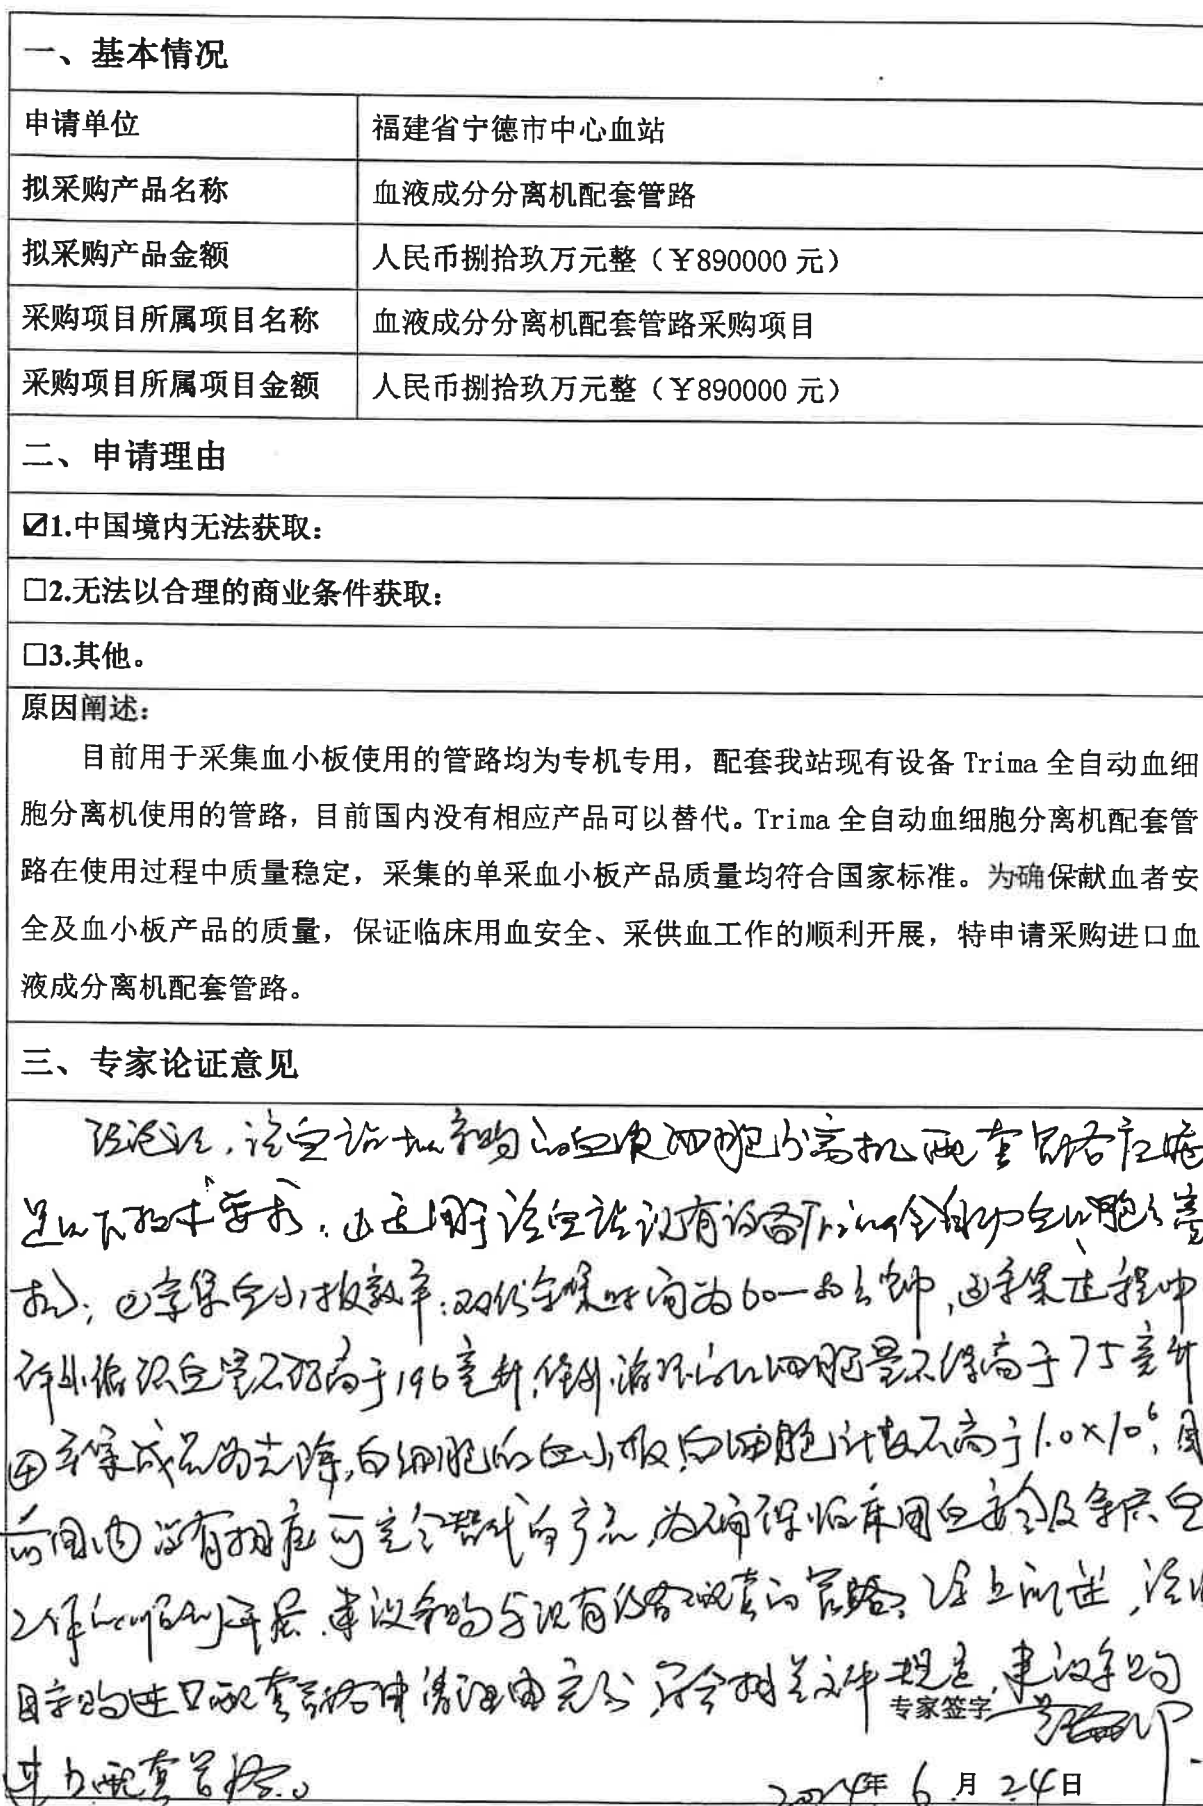 一、基本情况
申请单位 福建省宁德市中心血站
拟采购产品名称 血液成分分离机配套管路
拟采购产品金额 人民币捌拾玖万元整（￥890000 元）
采购项目所属项目名称 血液成分分离机配套管路采购项目
采购项目所属项目金额 人民币捌拾玖万元整（￥890000 元）
二、申请理由
☑1.中国境内无法获取：
□2.无法以合理的商业条件获取：
□3.其他。
原因阐述：
目前用于采集血小板使用的管路均为专机专用，配套我站现有设备 Trima 全自动血细
胞分离机使用的管路，目前国内没有相应产品可以替代。Trima 全自动血细胞分离机配套管
路在使用过程中质量稳定，采集的单采血小板产品质量均符合国家标准。为确保献血者安
全及血小板产品的质量，保证临床用血安全、采供血工作的顺利开展，特申请采购进口血
液成分离机配套管路。
三、专家论证意见
经论证，该血站拟采购的血液细胞分离机配套管路应满
足以下技术要求：①适用于该血站现有设备Trima全自动血细胞分离
机；②采集血小板效率：双份采集时间为60—分钟，③采集过程中
体外循环血量不得高于196毫升，体外循环的红细胞量不得高于75毫升
④采集成品为去除白细胞的血小板，白细胞计数不高于1.0×10⁶，目
前国内没有相应可完全替代的产品，为确保临床用血安全及采供血
工作的顺利开展，建议采购与现有设备配套的管路。综上所述，该项
目采购进口配套管路申请理由充分，符合相关文件规定，建议采购
专家签字
进口配套管路。
2024年 6 月 24日